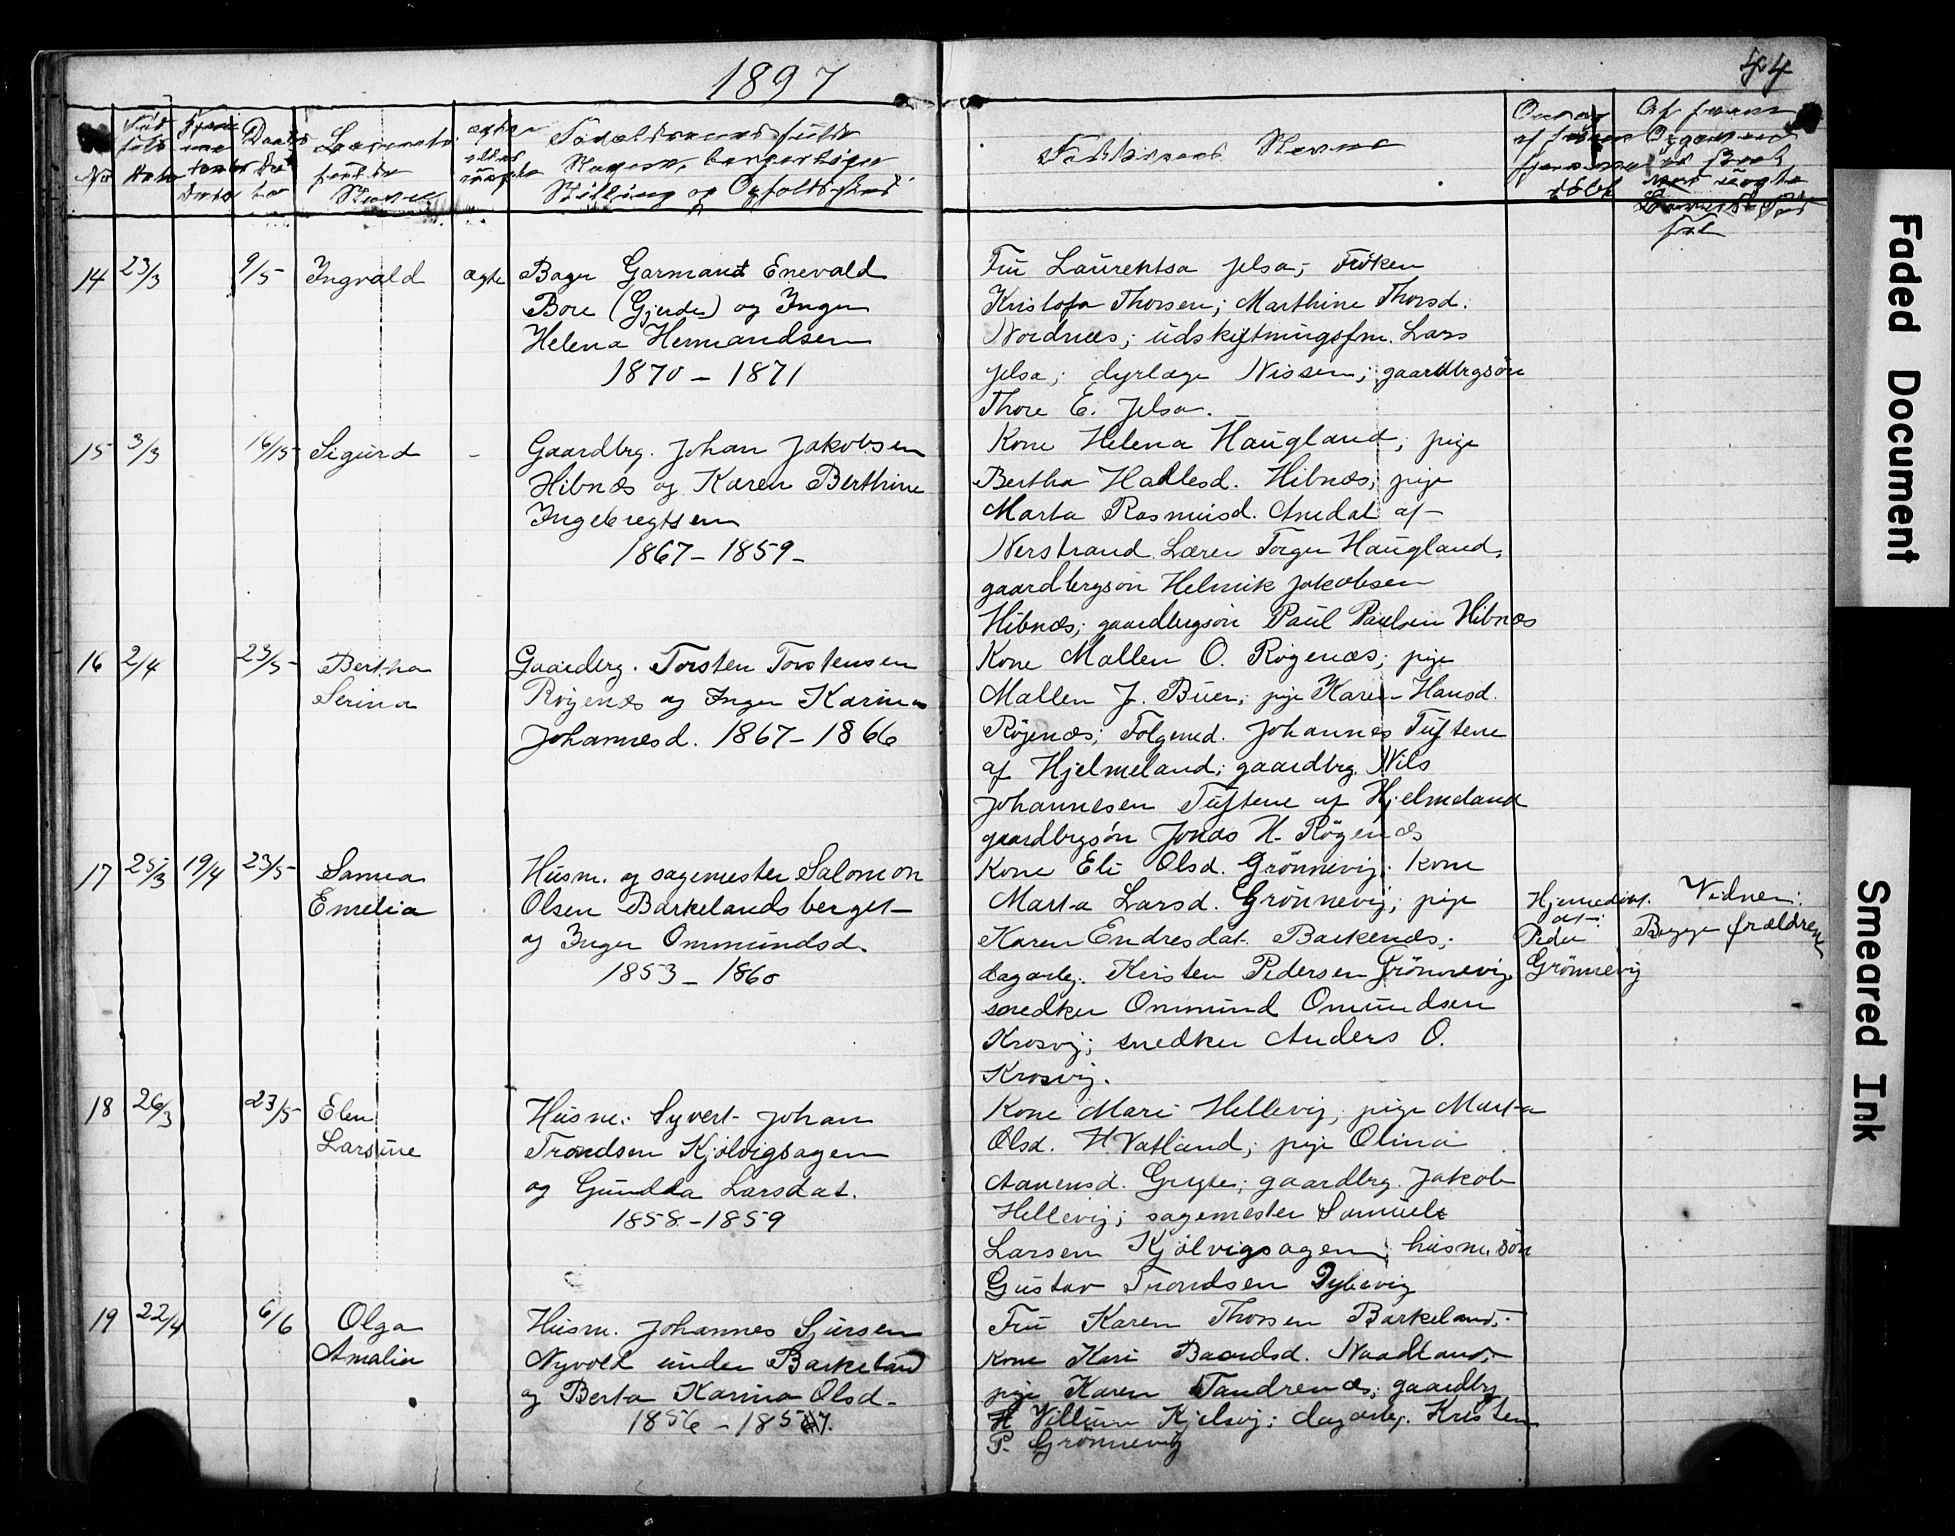 1897
44
No
Fadderenes Navne
14 23/3 9/5 Ingvald ægte Bager Garmand Enevald
Bore (Gjerde) og Inger
Helena Hermandsen
1870 - 1871
Fru Laurentsa Jelsa; Fröken
Kristofa Thorsen; Marthine Thorsd.
Nordnæs; udskiftningsfm. Lars
Jelsa; dyrlæge Nissen; gaardbrgsön
Thore E. Jelsa.
15 3/3 16/5 Sigurd - Gaardbrg. Johan Jakobsen
Hibnæs og Karen Berthine
Ingebregtsen
1867 - 1859 -
Kone Helena Haugland; pige
Bertha Hadlesd. Hibnæs; pige
Marta Rasmusd. Amdal af
Nerstrand. Lærer Torger Haugland,
gaardbergsön Helmik Jakobsen
Hibnæs; gaardbergsön Paul Paulsen Hibnæs
16 2/4 23/5 Bertha
Serina
Gaardbrg. Torsten Torstensen
Röjenæs og Inger Karina
Johannesd. 1867 - 1866
Kone Mallen O. Rögenæs; pige
Mallen J. Buer; pige Karen Hansd.
Röjenæs; Folgemd. Johannes Tuftene
af Hjelmeland; gaardbrg. Nils
Johannesen Tuftene af Hjelmeland
gaardbrgsön Jonas H. Rögenæs
17 25/3 19/4 23/5 Sanna
Emelia
Husm. og sagemester Salomon
Olsen Barkelandsberget
og Inger Ommundsd.
1853 - 1860
Kone Eli Olsd. Grönnevig; kone
Marta Larsd. Grönnevig; pige
Karen Endresdat. Barkenæs;
dagarbj. Kristen Pedersen Grönnevig
snedker Ommund Omundsen
Krosvig; snedker Anders O.
Krosvig.
Hjemedöbt.
af:
Peder
Grönnevig
Vidner:
Begge forældrene
18 26/3 23/5 Elen
Larsine
Husm. Syvert Johan
Trondsen Kjölvigsagen
og Gundla Larsdat.
1858 - 1859
Kone Mari Hellevig; pige Marta
Olsd. H. Vatland; pige Olina
Aanensd. Gryte; gaardbrg. Jakob
Hellevig; sagemester Samuel
Larsen Kjölvigsagen; husm. sön
Gustav Trondsen Dybevig
19 22/4 6/6 Olga
Amalia
Husm. Johannes Sjursen
Nyvold under Barkeland
og Berta Karina Olsd.
1856 - 1857.
Fru Karen Thorsen Barkeland;
kone Kari Baardsd. Naadland;
pige Karen Tandrenæs; gaardbrg
Villum Kjelsvig; dagarbj. Kristen
P. Grönnevig
Faded Document
Smeared Ink